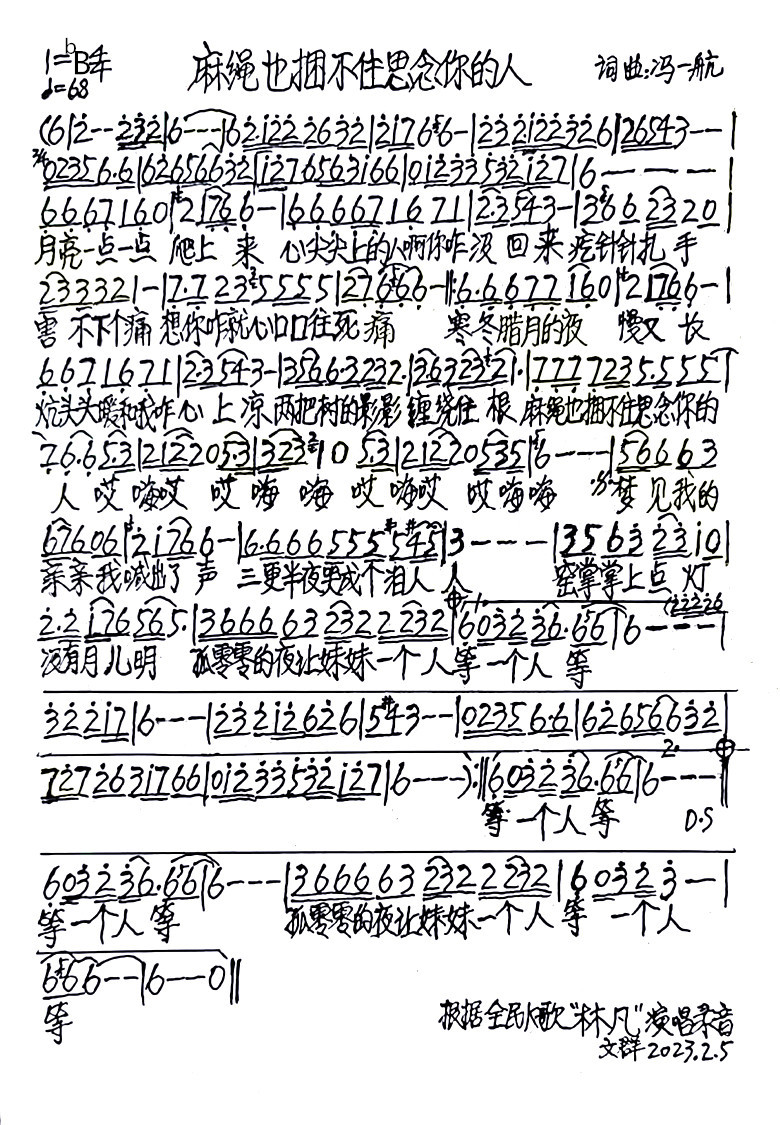 1=ᵇB 4/4 麻绳也捆不住思念你的人 词曲:冯一航
♩=68
(6|2--232|6---|621222632|21766-|232122326|26543--|
3/4 02356.6|62656632|1276563166|01233532127|6----|
6667160|21766-|666671671|23543-|3662320|
月亮一点一点 爬上 来 心尖尖上的人啊你咋没 回 来 疙针针扎 手
2333321-|7.7235555|276666-|:6.6677160|21766-|
害 不下个痛 想你咋就心口口往死 痛 寒冬腊月的夜 慢又 长
6671671|23543-|35663232.|36323321.|7777235.555|
炕头头暖和我咋心 上 凉 两把树的影影 缠绕住 根 麻绳也捆不住思念你的
76.653|2122053|32310 53|21220535|6---|56663
人 哎 嗨哎 哎 嗨 嗨 哎 嗨哎 哎嗨嗨 梦 见我的
67606|21766-|6.666555545|3---|35632310|
亲亲我喊出了 声 三更半夜哭成个泪人 人 窑掌掌上点 灯
2.2176565.|3666632322232|603236.66|6---|
没有月儿明 孤零零的夜让妹妹一个 人等 一个人 等
32217|6---|232126266|543--|02356.6|62656632|
727263766|01233532127|6----):‖603236.66|6---‖
等一个人 等 D.S
603236.66|6----|3666632322232|60323--|
等一个人 等 孤零零的夜让妹妹一个 人 等 一个人
666--|6--0‖
等
根据全民K歌“林凡”演唱录音
文群2023.2.5